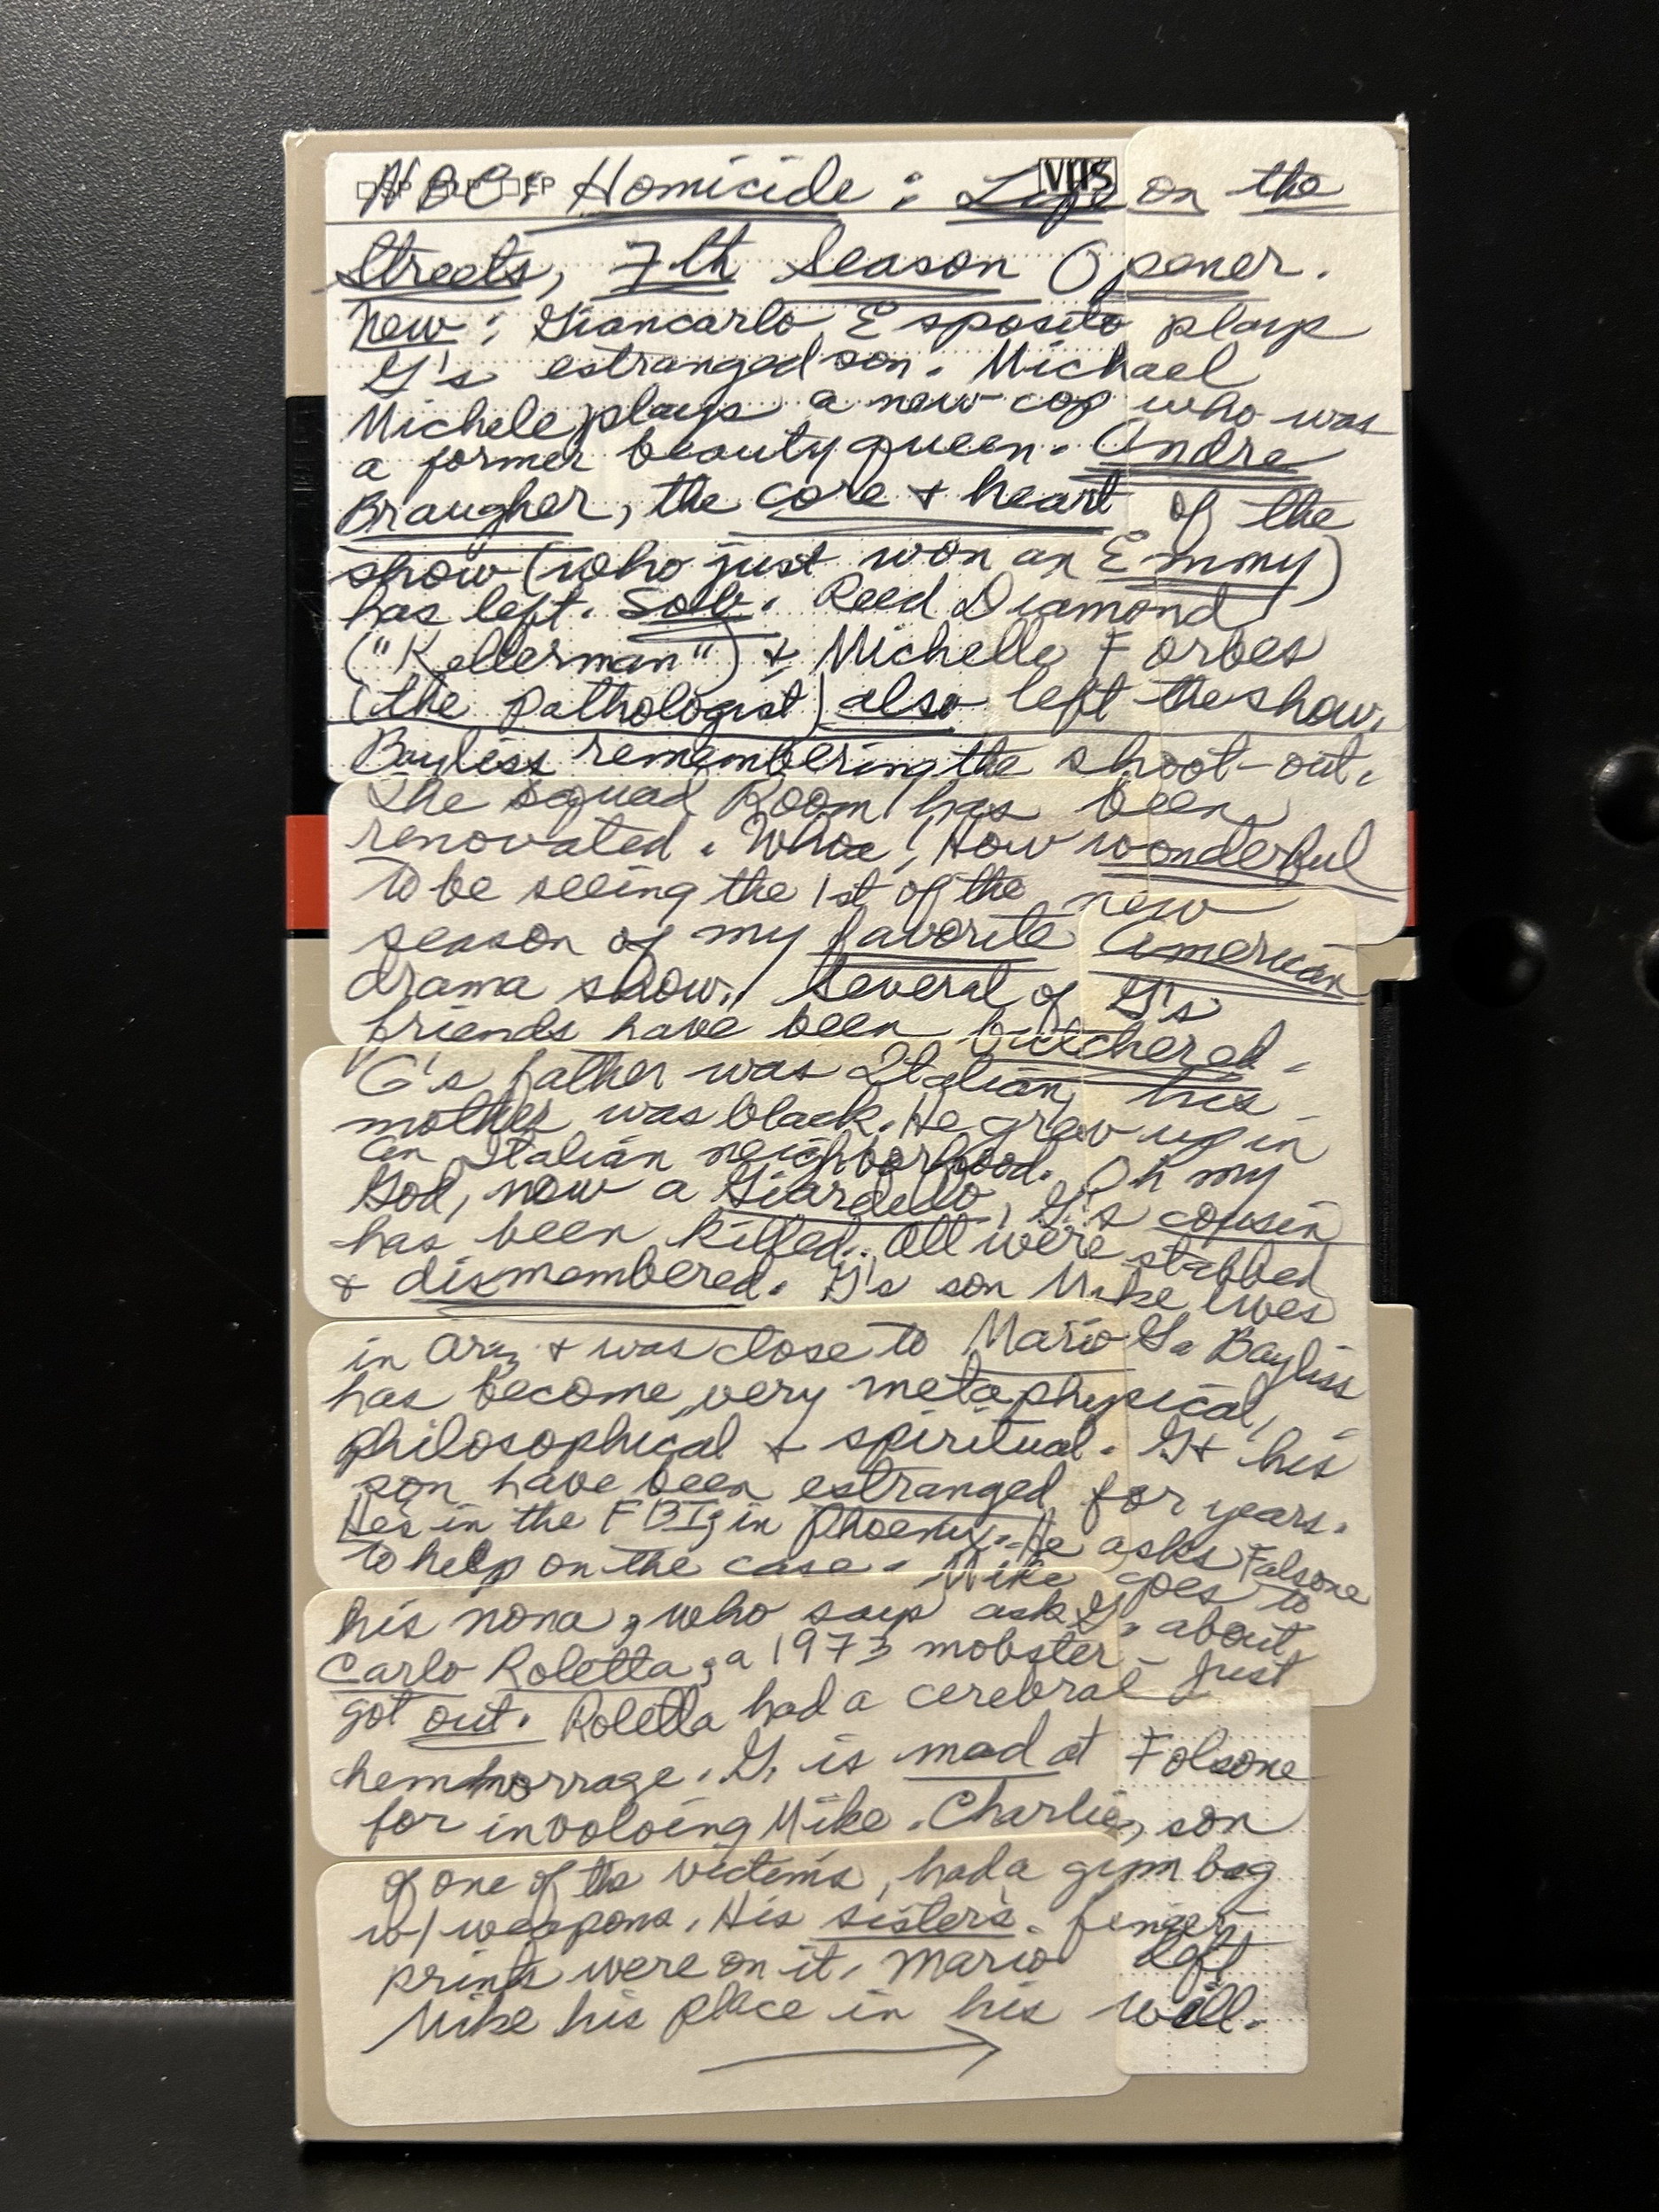 NBC: Homicide: Life on the
Streets, 7th Season Opener.
New: Giancarlo Esposito plays
G's estranged son. Michael
Michele plays a new cop who was
a former beauty queen. Andre
Braugher, the core & heart of the
show (who just won an Emmy)
has left. Sob. Reed Diamond
("Kellerman") & Michelle Forbes
(the pathologist) also left the show.
Bayliss remembering the shoot-out.
The Squad Room has been
renovated. Whoa! How wonderful
to be seeing the 1st of the new
season of my favorite American
drama show. Several of G's
friends have been butchered.
G's father was Italian, his
mother was black. He grew up in
an Italian neighborhood. Oh my
God, now a Giardello, G's cousin
has been killed. All were stabbed
& dismembered. G's son Mike lives
in Ariz & was close to Mario G. Bayliss
has become very metaphysical,
philosophical & spiritual. G & his
son have been estranged for years.
He's in the FBI, in Phoenix. He asks Falsone
to help on the case. Mike goes to
his nona, who says ask G. about
Carlo Roletta, a 1973 mobster - just
got out. Roletta had a cerebral
hemhorrage. G. is mad at Folsone
for involving Mike. Charlie, son
of one of the victims, had a gym bag
w/ weapons. His sister's finger
prints were on it. Mario left
Mike his place in his will.
VHS